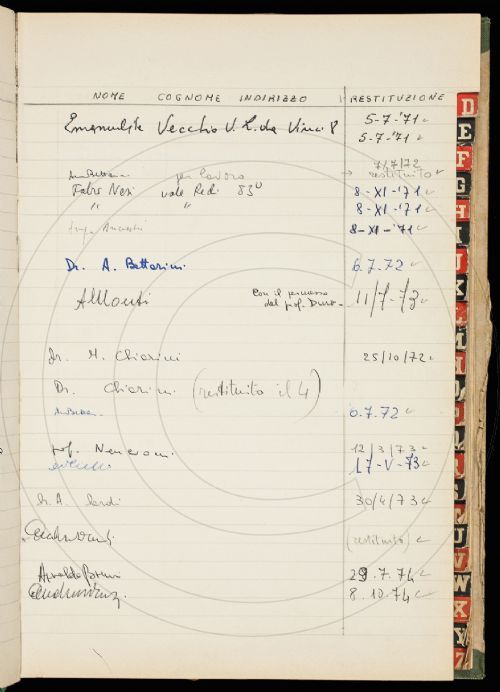 NOME COGNOME INDIRIZZO RESTITUZIONE
Emanuele Vecchio V. L. da Vinci 8 5-7-'71
5-7-'71
7/7/72
per lavoro restituito
Fabio Nesi viale Redi 83 8-XI-'71
" " 8-XI-'71
8-XI-'71
Dr. A. Bettarini 6.7.72
AMonti con il permesso 11/7-73
del prof.
Dr. M. Chiarini 25/10/72
Dr. Chiarini (restituito il 4)
6.7.72
prof. Nencioni 12/3/73
17-V-73
Dr. A. 30/4/73
(restituito)
Arnaldo Bruni 29.7.74
8.10.74
D
E
F
G
H
I
J
K
L
M
N
O
P
Q
R
S
T
U
V
W
X
Y
Z